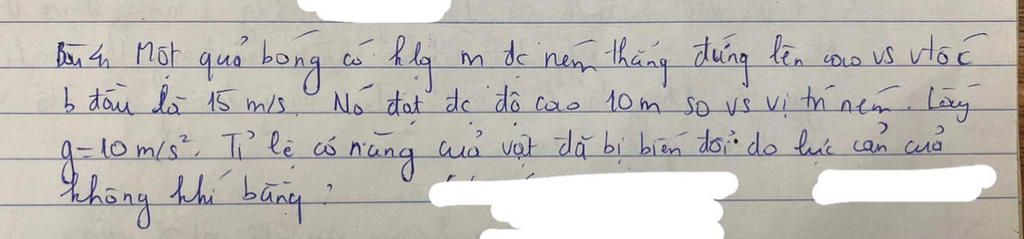 Bài 4 Một quả bóng có klg m đc ném thẳng đứng lên cao vs vtốc
b đầu là 15 m/s. Nó đạt đc độ cao 10m so vs vị trí ném. Lấy
g=10 m/s². Tỉ lệ cơ năng của vật đã bị biến đổi do lực cản của
không khí bằng?